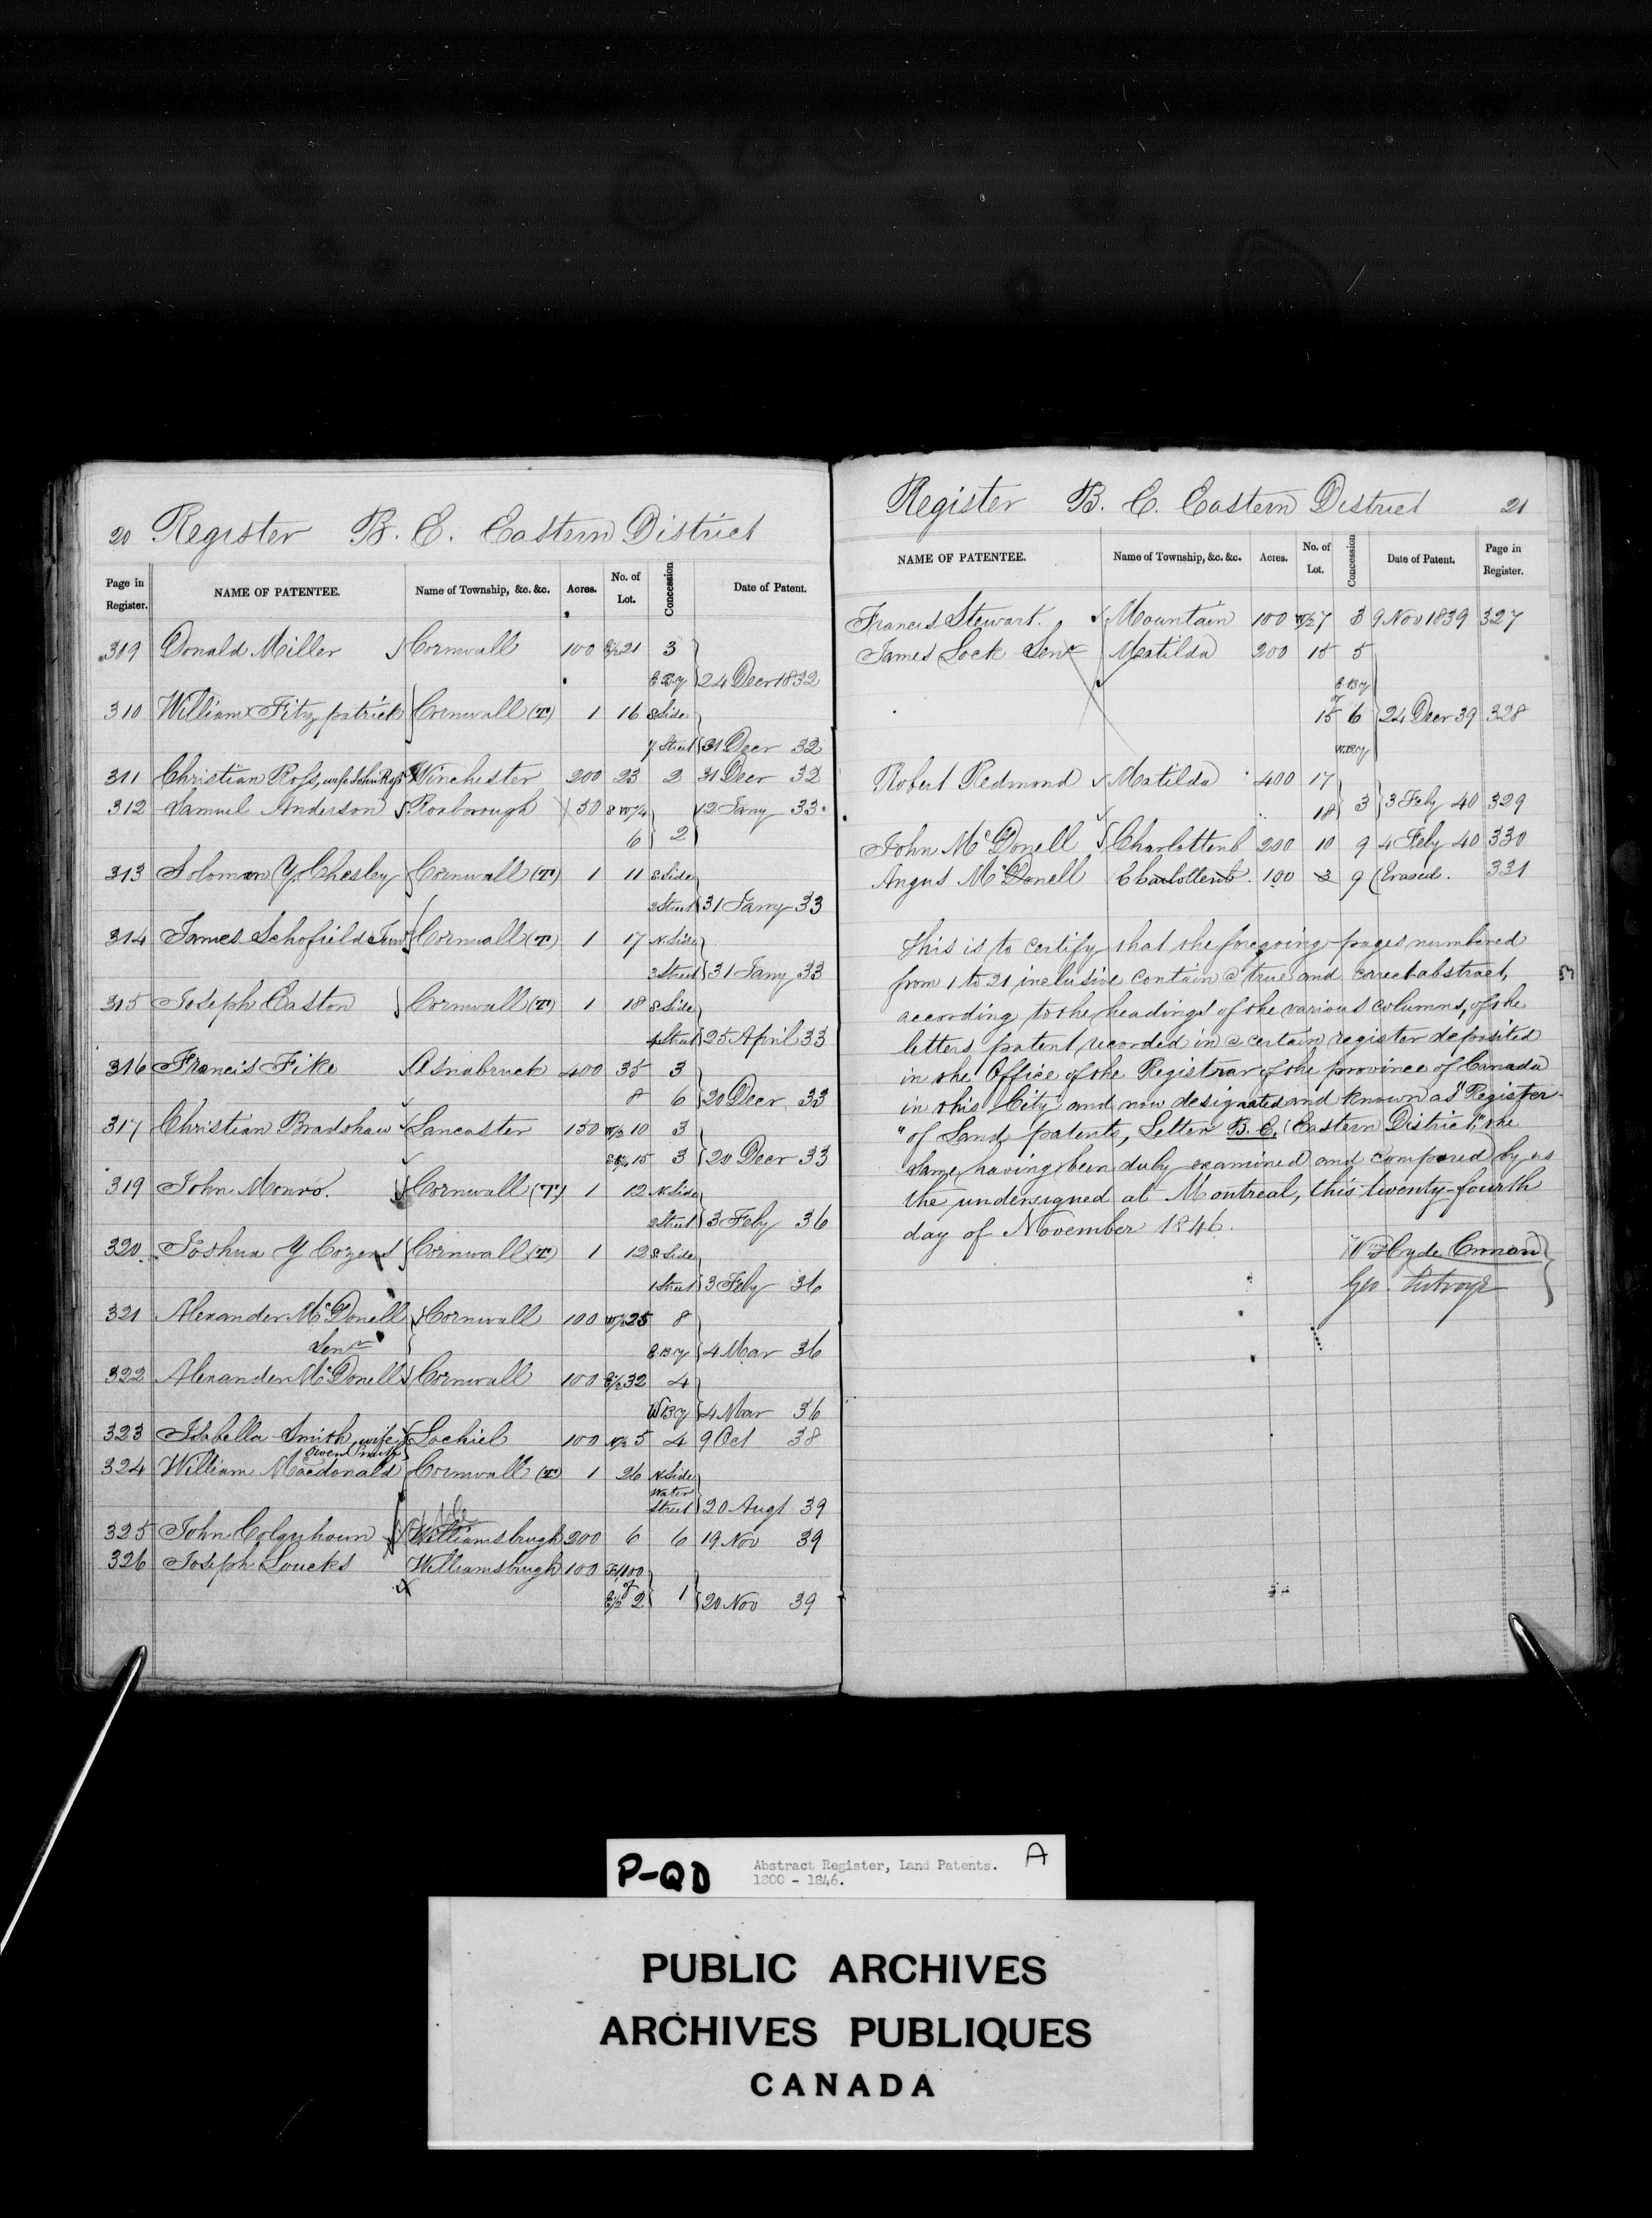 20 Register B. C. Eastern District
Page in Register. NAME OF PATENTEE. Name of Township, &c. &c. Acres. No. of Lot. Concession Date of Patent.
309 Donald Miller Cornwall 100 E½ 21 3
E By 24 Decr 1832
310 William Fitzpatrick Cornwall (T) 1 16 S Side
Street 31 Decr 32
311 Christian Ross, wife John Ross Winchester 200 23 2 31 Decr 32
312 Samuel Anderson Roxborough 50 S W ¼ 12 Jany 33
6 2
313 Solomon Y. Chesley Cornwall (T) 1 11 S Side
2 Street 31 Jany 33
314 James Schofield Junr Cornwall (T) 1 17 N Side
2 Street 31 Jany 33
315 Joseph Easton Cornwall (T) 1 18 S Side
4 Street 25 April 33
316 Francis Fike Osnabruck 400 35 3
8 6 20 Decr 33
317 Christian Bradshaw Lancaster 150 W½ 10 3
15 3 20 Decr 33
319 John Monro. Cornwall (T) 1 12 N Side
2 Street 3 Feby 36
320 Joshua Y Cozens Cornwall (T) 1 12 S Side
1 Street 3 Feby 36
321 Alexander McDonell Cornwall 100 W½ 25 8
Senr E By 4 Mar 36
322 Alexander McDonell Cornwall 100 E½ 32 4
W By 4 Mar 36
323 Isabella Smith, wife of Lochiel 100 N½ 5 4 9 Oct 38
Owen Smith
324 William Macdonald Cornwall (T) 1 26 N Side
Water
Street 20 Augt 39
325 John Colquhoun Williamsburgh 200 6 6 19 Nov 39
326 Joseph Loucks Williamsburgh 100 100
of
E½ 2 1 20 Nov 39
Register B. C. Eastern District 21
NAME OF PATENTEE. Name of Township, &c. &c. Acres. No. of Lot. Concession Date of Patent. Page in Register.
Francis Stewart. Mountain 100 W½ 7 3 9 Nov 1839 327
James Lock Senr Matilda 200 15 5
E By
of
15 6 24 Decr 39 328
W By
Robert Redmond Matilda 400 17
18 3 3 Feby 40 329
John McDonell Charlottenb 200 10 9 4 Feby 40 330
Angus McDonell Charlottenb. 100 3 9 Erased. 331
This is to certify that the foregoing pages numbered
from 1 to 21 inclusive contain a true and correct abstract,
according to the headings of the various columns, of the
letters patent recorded in a certain register deposited
in the Office of the Registrar of the province of Canada
in this City and now designated and known as "Register
"of Land patents, Letter B. C. Eastern District," the
same having been duly examined and compared by us
the undersigned at Montreal, this twenty-fourth
day of November 1846.
Wm Hyde
Geo.
P-QD Abstract Register, Land Patents. A
1800 - 1846.
PUBLIC ARCHIVES
ARCHIVES PUBLIQUES
CANADA